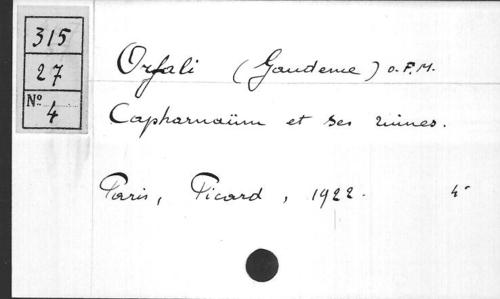 315
27
Nº 4
Orfali (Gaudence) O.F.M.
Capharnaüm et ses ruines.
Paris, Picard, 1922. 4°